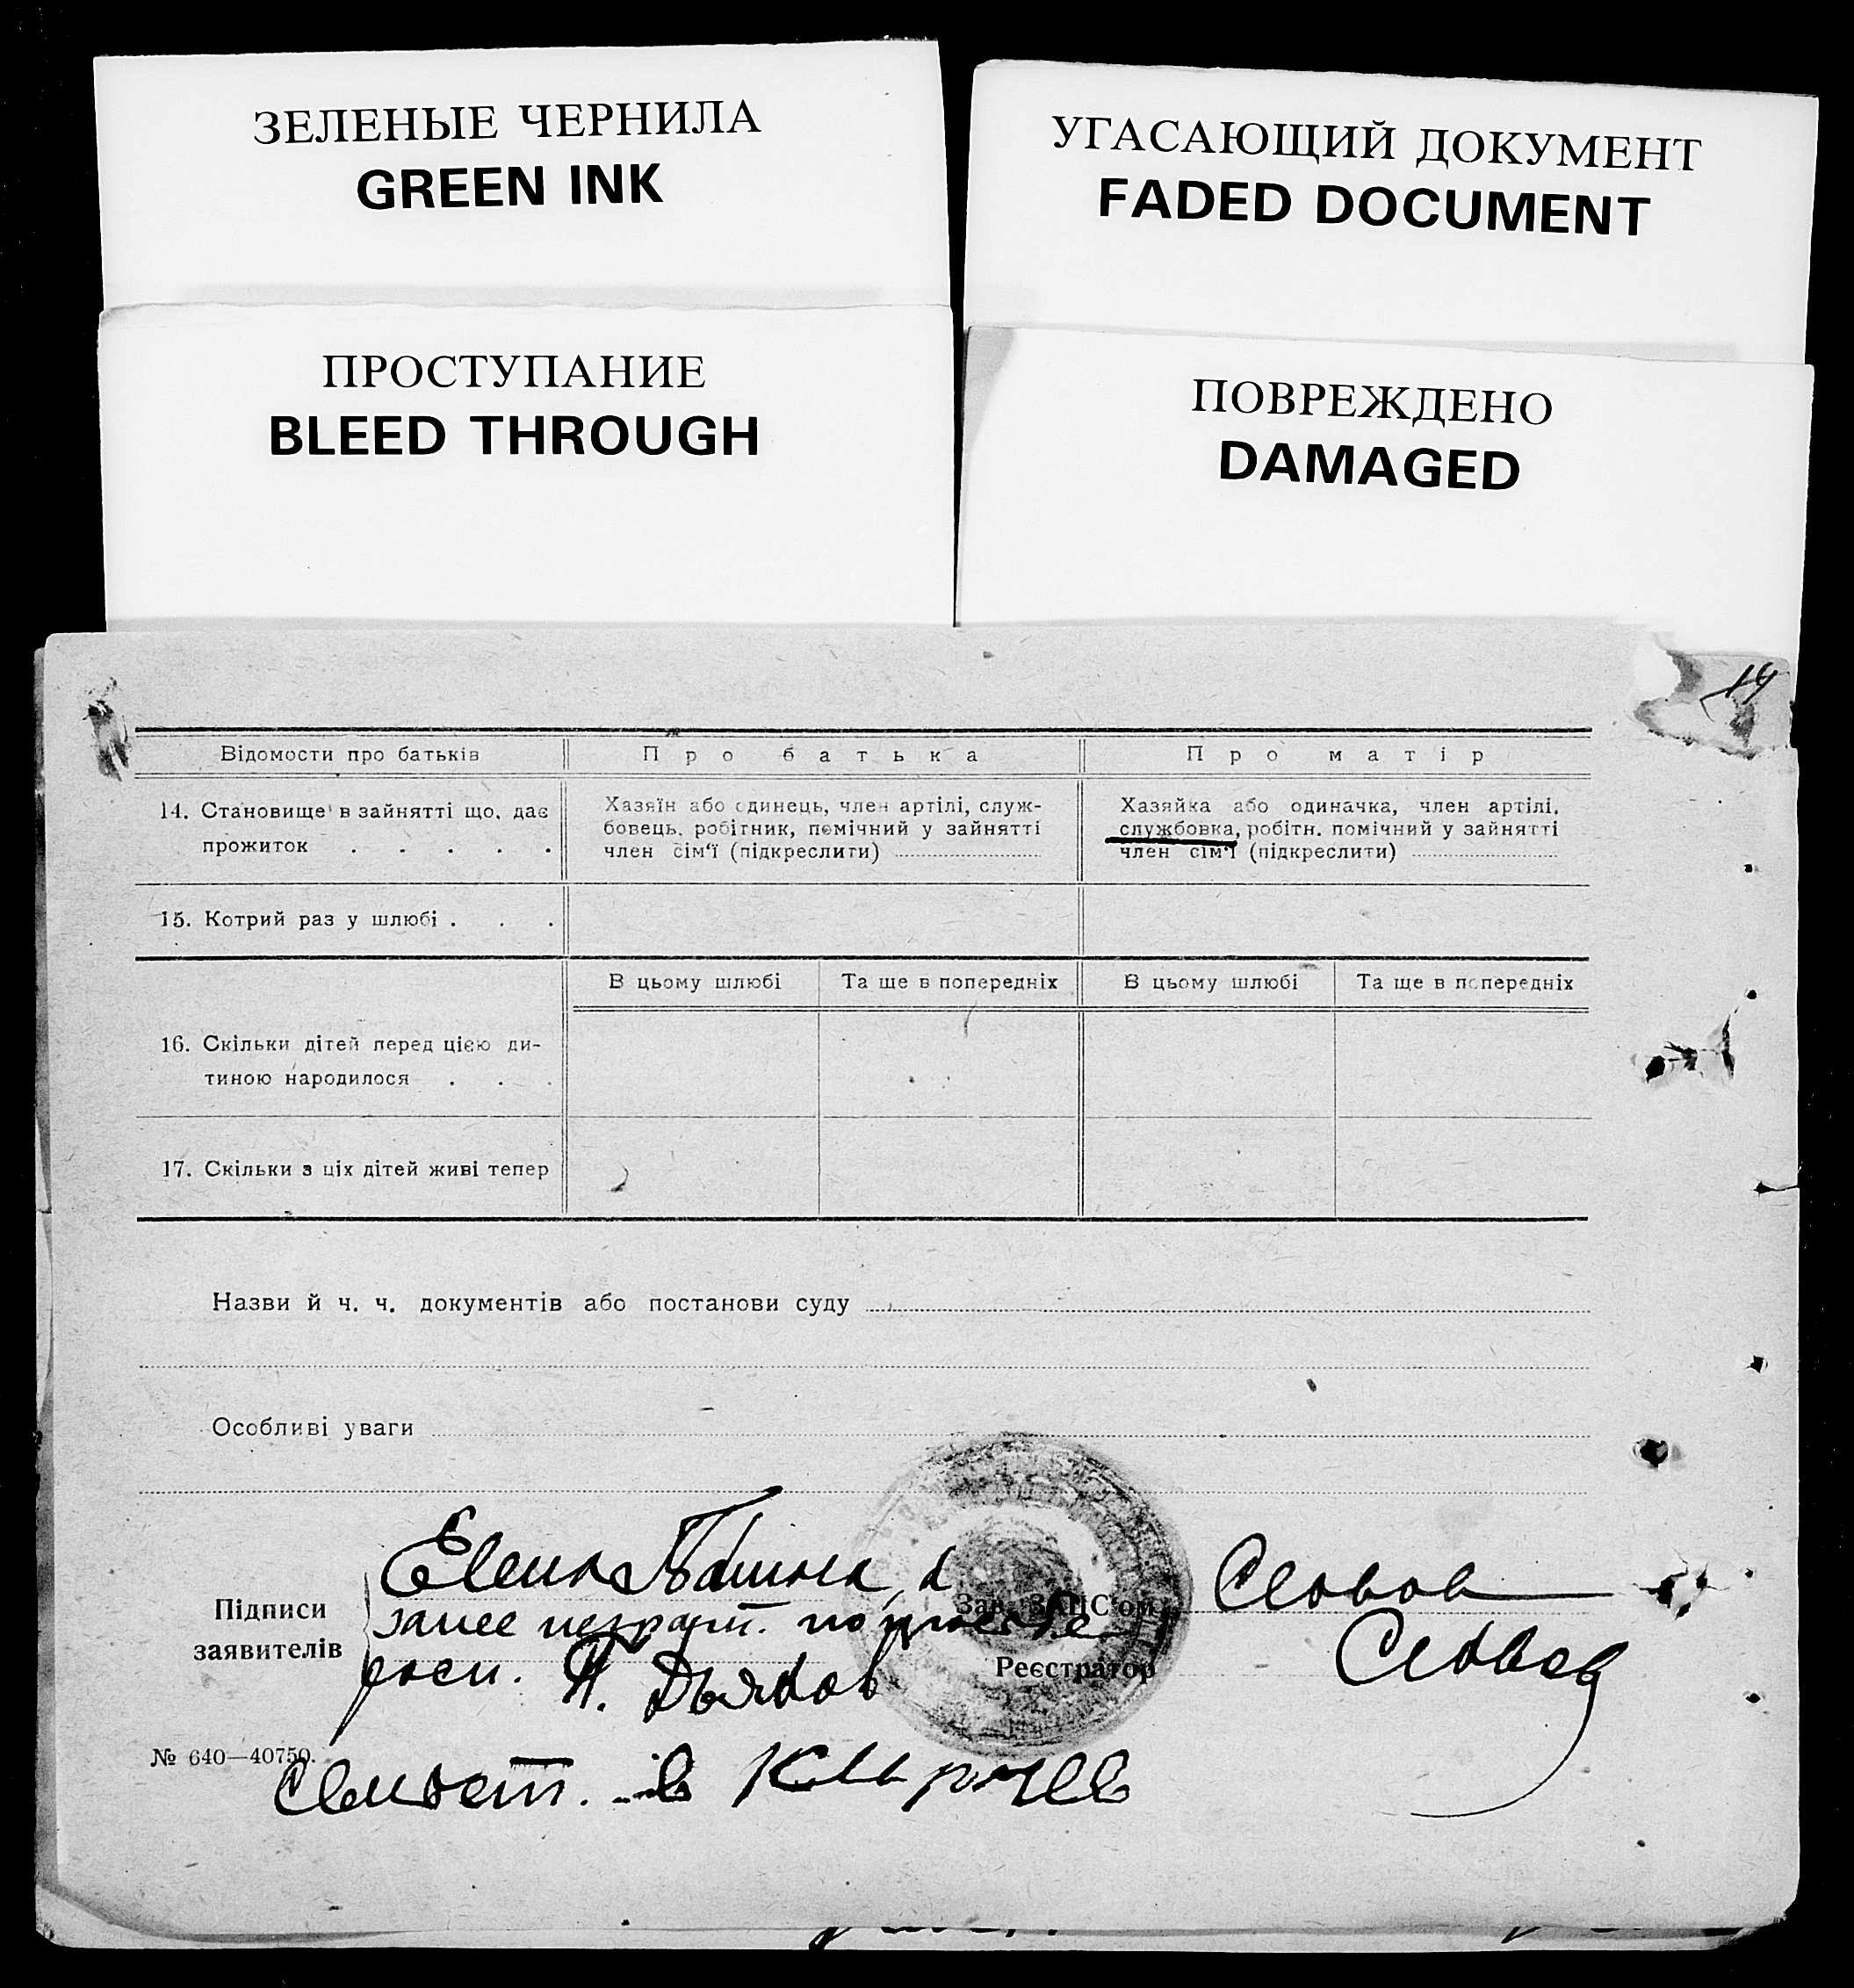 ЗЕЛЕНЫЕ ЧЕРНИЛА
GREEN INK
УГАСАЮЩИЙ ДОКУМЕНТ
FADED DOCUMENT
ПРОСТУПАНИЕ
BLEED THROUGH
ПОВРЕЖДЕНО
DAMAGED
14
Відомости про батьків
Про батька
Про матір
14. Становище в зайнятті що, дає
прожиток . . . . .
Хазяїн або одинець, член артілі, служ-
бовець, робітник, помічний у зайнятті
член сім'ї (підкреслити)
Хазяйка або одиначка, член артілі,
службовка, робітн. помічний у зайнятті
член сім'ї (підкреслити)
15. Котрий раз у шлюбі . . .
В цьому шлюбі
Та ще в попередніх
В цьому шлюбі
Та ще в попередніх
16. Скільки дітей перед цією ди-
тиною народилося . . .
17. Скільки з ціх дітей живі тепер
Назви й ч. ч. документів або постанови суду
Особливі уваги
Підписи
заявителів
Елена
негра
росп. Дьяков
Зав. ЗАПС'ом
Реєстратор
№ 640—40750.